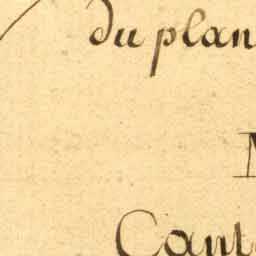 du plan
Cant